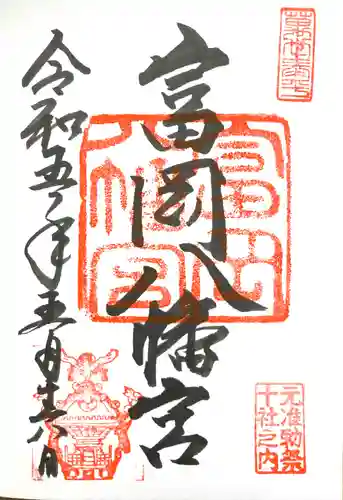 富岡八幡宮
令和五年五月廿八日
富岡
八幡宮
元准勅祭
十社之内